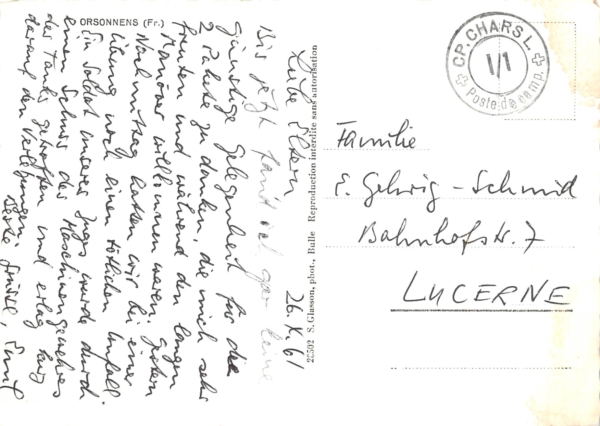 ORSONNENS (Fr.)
26.X.61
Liebe Eltern
Bis jetzt fand ich gar keine
günstige Gelegenheit für die
2 Pakete zu danken, die mich sehr
freuten und während den langen
Manöver willkommen waren. Gestern
Nachmittag hatten wir bei einer
Übung noch einen tötlichen Unfall.
Ein Soldat unseres Zugs wurde durch
einen Schuss des Maschinengewehres
des Tanks getroffen und erlag kurz
darauf den Verletzungen.
Beste Grüsse,
22502 S. Glasson, phot., Bulle Reproduction interdite sans autorisation
CP. CHARS L.
1/1
Poste de camp.
Familie
E. Gehrig-Schmid
Bahnhofstr. 7
LUCERNE